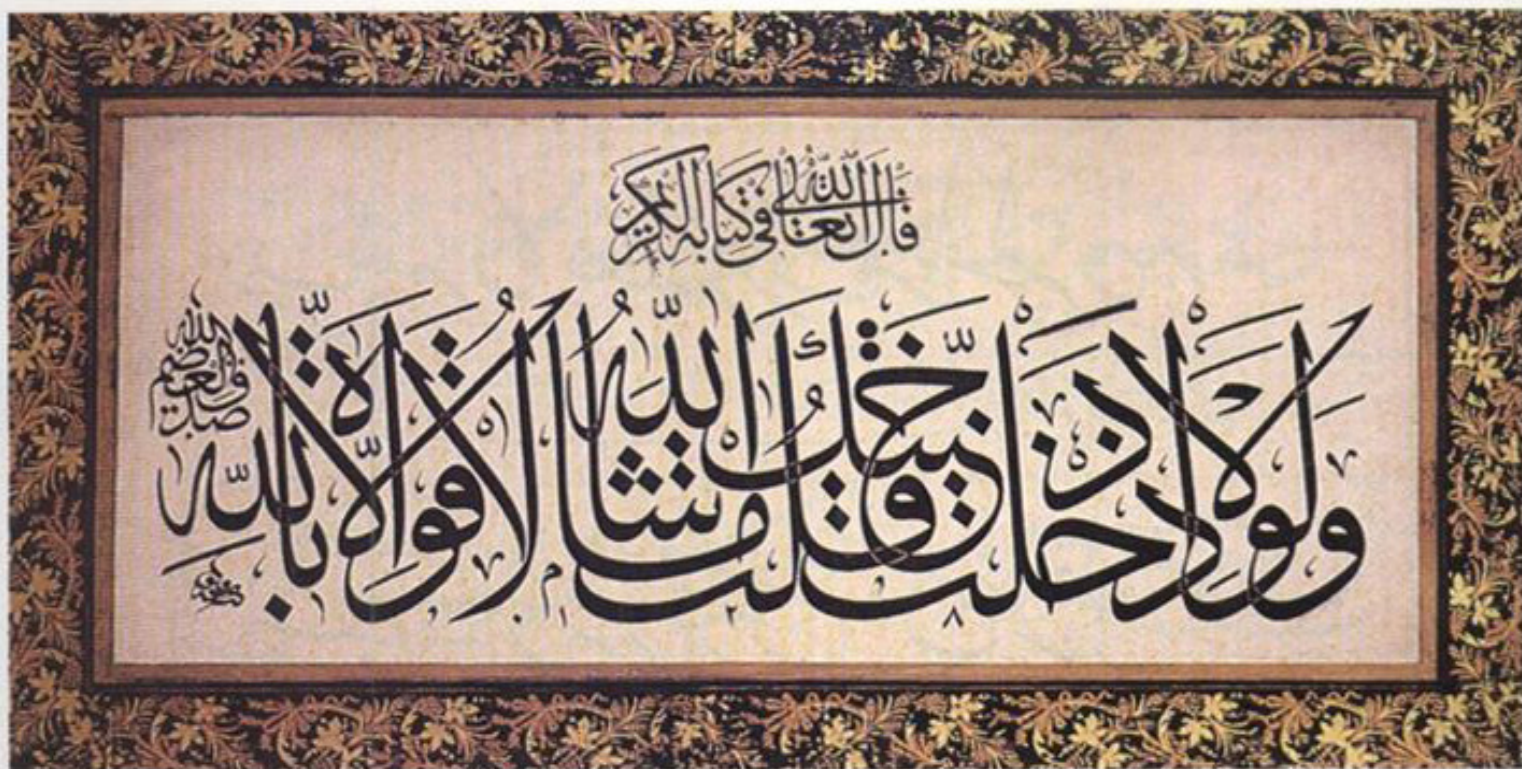 قال الله تعالى في كتابه الكريم
ولولا إذ دخلت جنتك قلت ما شاء الله لا قوة إلا بالله
صدق الله العظيم